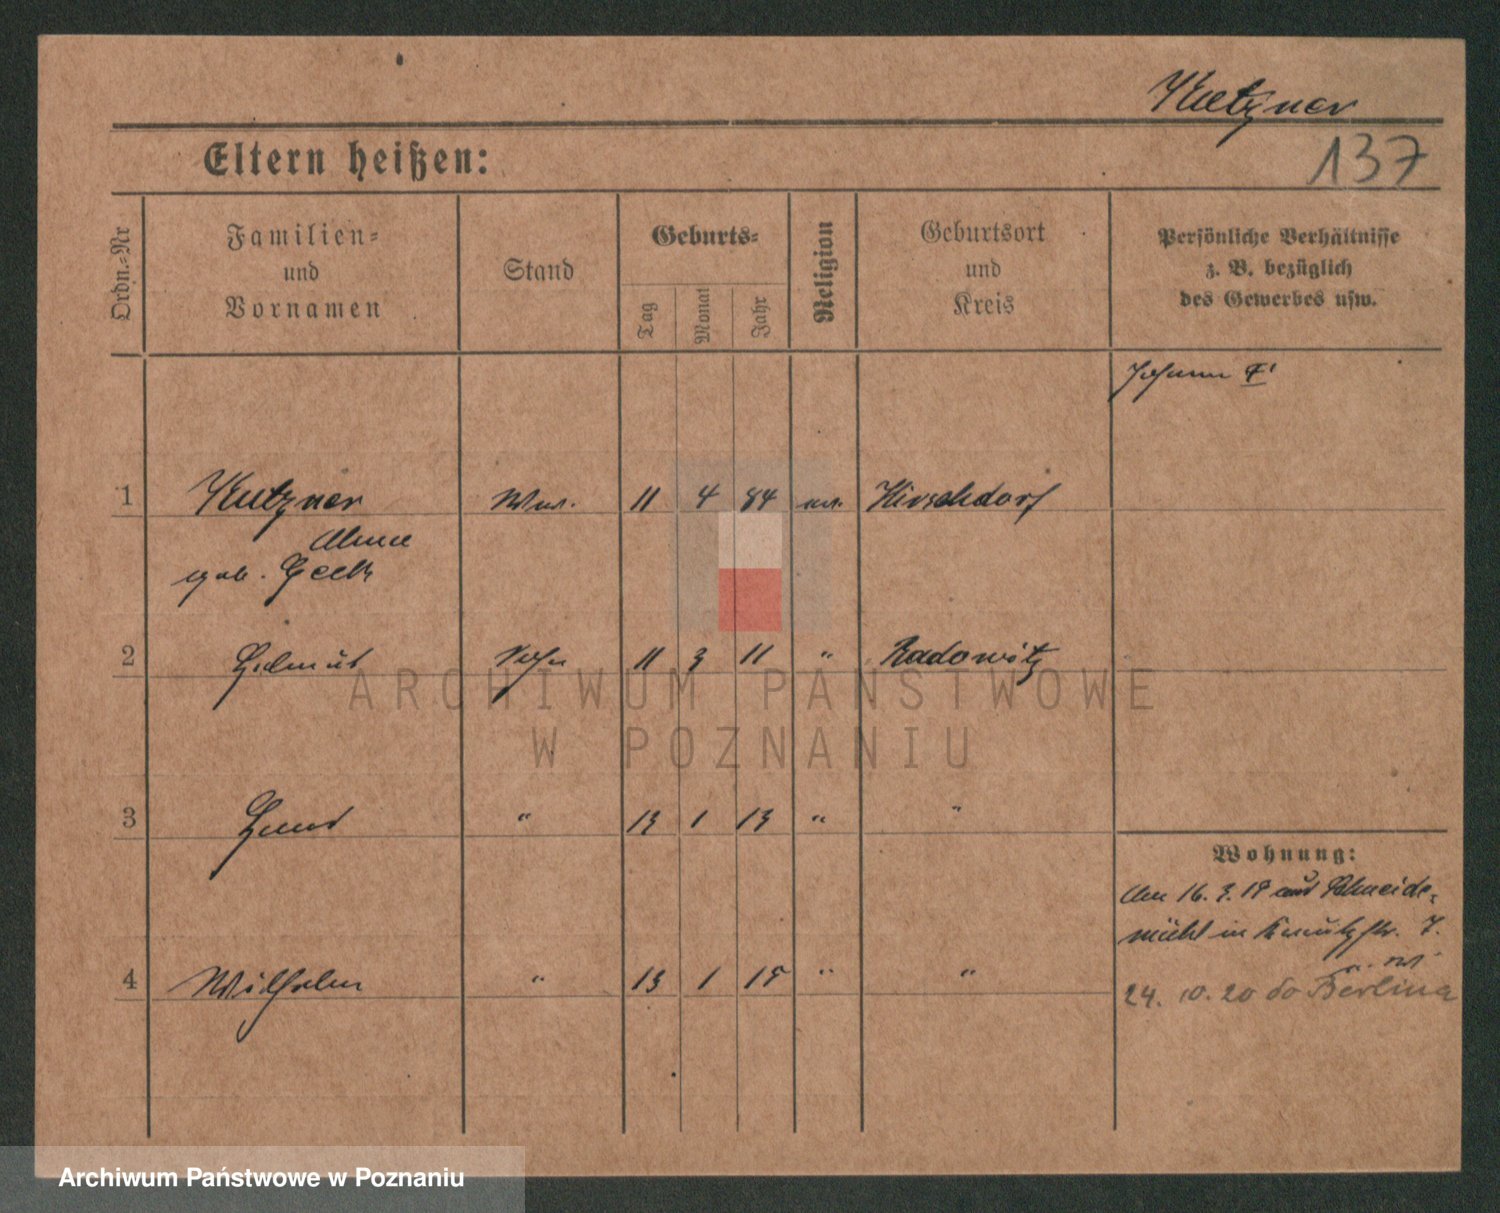 Kutzner
137
Eltern heißen:
Ordn.-Nr
Familien-
und
Vornamen
Stand
Geburts-
Tag
Monat
Jahr
Religion
Geburtsort
und
Kreis
Persönliche Verhältnisse
z. B. bezüglich
des Gewerbes usw.
Johann
1 Kutzner Ww. 11 4 84 Hirschdorf
geb.
2 Helmut Sohn 11 3 11 " Radowitz
3 " 13 1 13 " "
Wohnung:
16. 3. 19 aus Schneide-
mühl in 7.
4 Wilhelm " 13 1 15 " "
24. 10. 20 do Berlina
ARCHIWUM PAŃSTWOWE
W POZNANIU
Archiwum Państwowe w Poznaniu